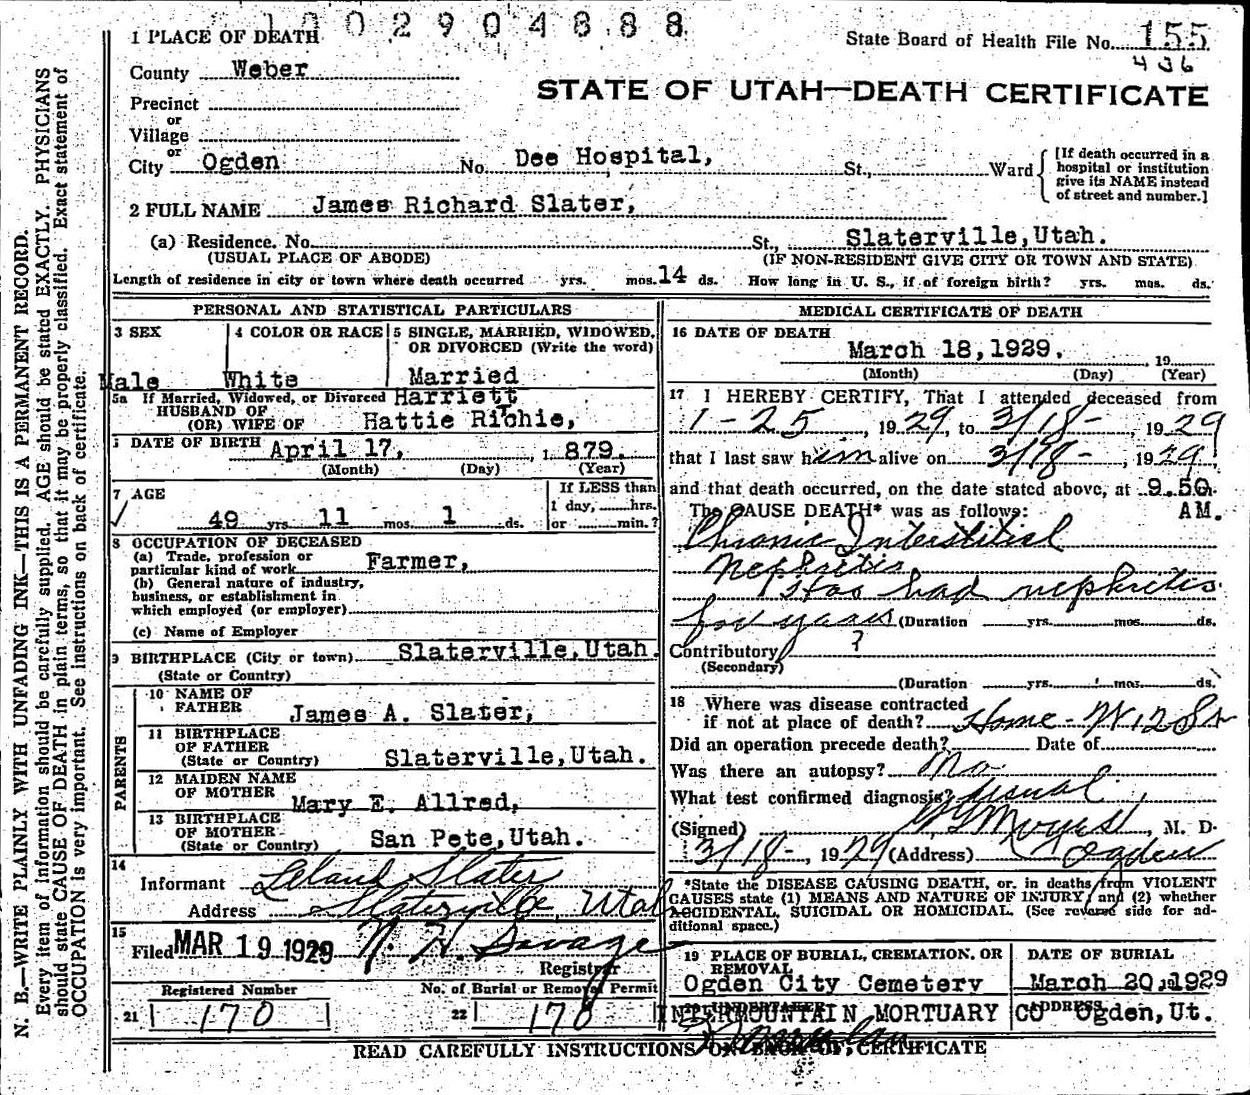 1002904888
1 PLACE OF DEATH
State Board of Health File No. 155
436
County Weber
STATE OF UTAH—DEATH CERTIFICATE
Precinct
or
Village
or
City Ogden No. Dee Hospital, St., Ward
[If death occurred in a
hospital or institution
give its NAME instead
of street and number.]
2 FULL NAME James Richard Slater,
(a) Residence. No. St., Slaterville, Utah.
(USUAL PLACE OF ABODE) (IF NON-RESIDENT GIVE CITY OR TOWN AND STATE)
Length of residence in city or town where death occurred yrs. mos. 14 ds. How long in U. S., if of foreign birth? yrs. mos. ds.
PERSONAL AND STATISTICAL PARTICULARS
3 SEX
Male
4 COLOR OR RACE
White
5 SINGLE, MARRIED, WIDOWED,
OR DIVORCED (Write the word)
Married
5a If Married, Widowed, or Divorced Harriett
HUSBAND OF
(OR) WIFE OF Hattie Richie,
DATE OF BIRTH April 17, 1 879.
(Month) (Day) (Year)
7 AGE
If LESS than
1 day, hrs.
or min.?
49 yrs 11 mos. 1 ds.
8 OCCUPATION OF DECEASED
(a) Trade, profession or
particular kind of work Farmer,
(b) General nature of industry,
business, or establishment in
which employed (or employer)
(c) Name of Employer
9 BIRTHPLACE (City or town) Slaterville, Utah.
(State or Country)
PARENTS
10 NAME OF
FATHER James A. Slater,
11 BIRTHPLACE
OF FATHER
(State or Country) Slaterville, Utah.
12 MAIDEN NAME
OF MOTHER Mary E. Allred,
13 BIRTHPLACE
OF MOTHER
(State or Country) San Pete, Utah.
14
Informant Leland Slater
Address Slaterville, Utah
15
Filed MAR 19 1929 N. H. Savage
Registrar
Registered Number No. of Burial or Removal Permit
21 170 22 170
MEDICAL CERTIFICATE OF DEATH
16 DATE OF DEATH
March 18, 1929. 19
(Month) (Day) (Year)
17 I HEREBY CERTIFY, That I attended deceased from
1-25, 1929, to 3/18-, 1929
that I last saw him alive on 3/18-, 1929
and that death occurred, on the date stated above, at 9.50.
The CAUSE DEATH* was as follows: AM.
Chronic Interstitial
Nephritis
Has had nephritis
for years (Duration yrs. mos. ds.
Contributory ?
(Secondary)
(Duration yrs. mos. ds.
18 Where was disease contracted
if not at place of death? Home
Did an operation precede death? Date of
Was there an autopsy? No
What test confirmed diagnosis? Usual
(Signed) M. D.
3/18-, 1929 (Address) Ogden
*State the DISEASE CAUSING DEATH, or, in deaths from VIOLENT
CAUSES state (1) MEANS AND NATURE OF INJURY, and (2) whether
ACCIDENTAL, SUICIDAL OR HOMICIDAL. (See reverse side for ad-
ditional space.)
19 PLACE OF BURIAL, CREMATION, OR
REMOVAL
Ogden City Cemetery
DATE OF BURIAL
March 20, 1929
UNDERTAKER
INTERMOUNTAIN MORTUARY CO
ADDRESS
Ogden, Ut.
READ CAREFULLY INSTRUCTIONS ON BACK OF CERTIFICATE
N. B.—WRITE PLAINLY WITH UNFADING INK—THIS IS A PERMANENT RECORD.
Every item of information should be carefully supplied. AGE should be stated EXACTLY. PHYSICIANS
should state CAUSE OF DEATH in plain terms, so that it may be properly classified. Exact statement of
OCCUPATION is very important. See instructions on back of certificate.